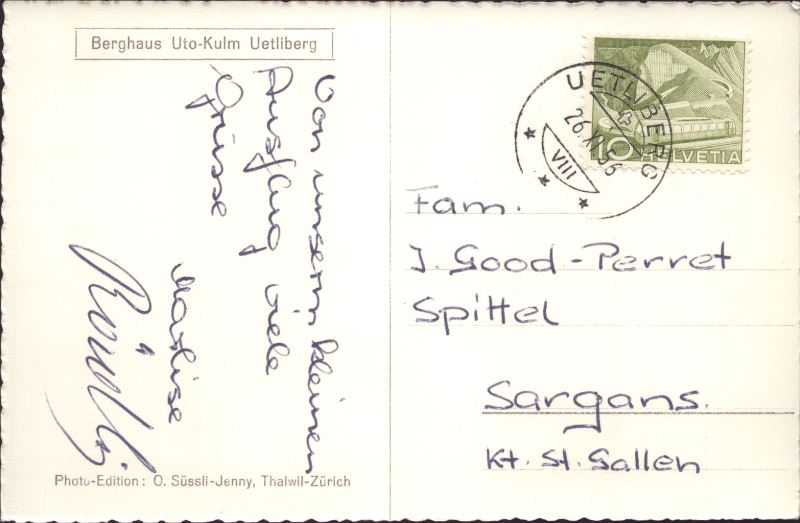 Berghaus Uto-Kulm Uetliberg
Von unserm kleinen
Ausflug viele
Grüsse
Marlise
Photo-Edition: O. Süssli-Jenny, Thalwil-Zürich
UETLIBERG
VIII
10 HELVETIA
Fam.
J. Good-Perret
Spittel
Sargans.
Kt. St. Gallen